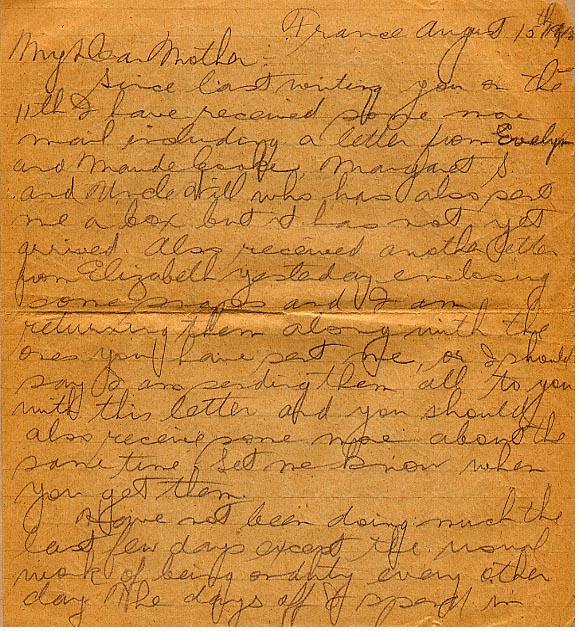 France August 15th 1918
My Dear Mother:
Since last writing you on the
11th I have received some more
mail including a letter from Evelyn
and Maude, Margaret S.
and Uncle Will who has also sent
me a box but it has not yet
arrived. Also received another letter
from Elizabeth yesterday enclosing
some snaps and I am
returning them along with the
ones you have sent me, or I should
say I am sending them all to you
with this letter and you should
also receive some more about the
same time. Let me know when
you get them.
Have not been doing much the
last few days except the usual
work of being on duty every other
day. The days off I spend in